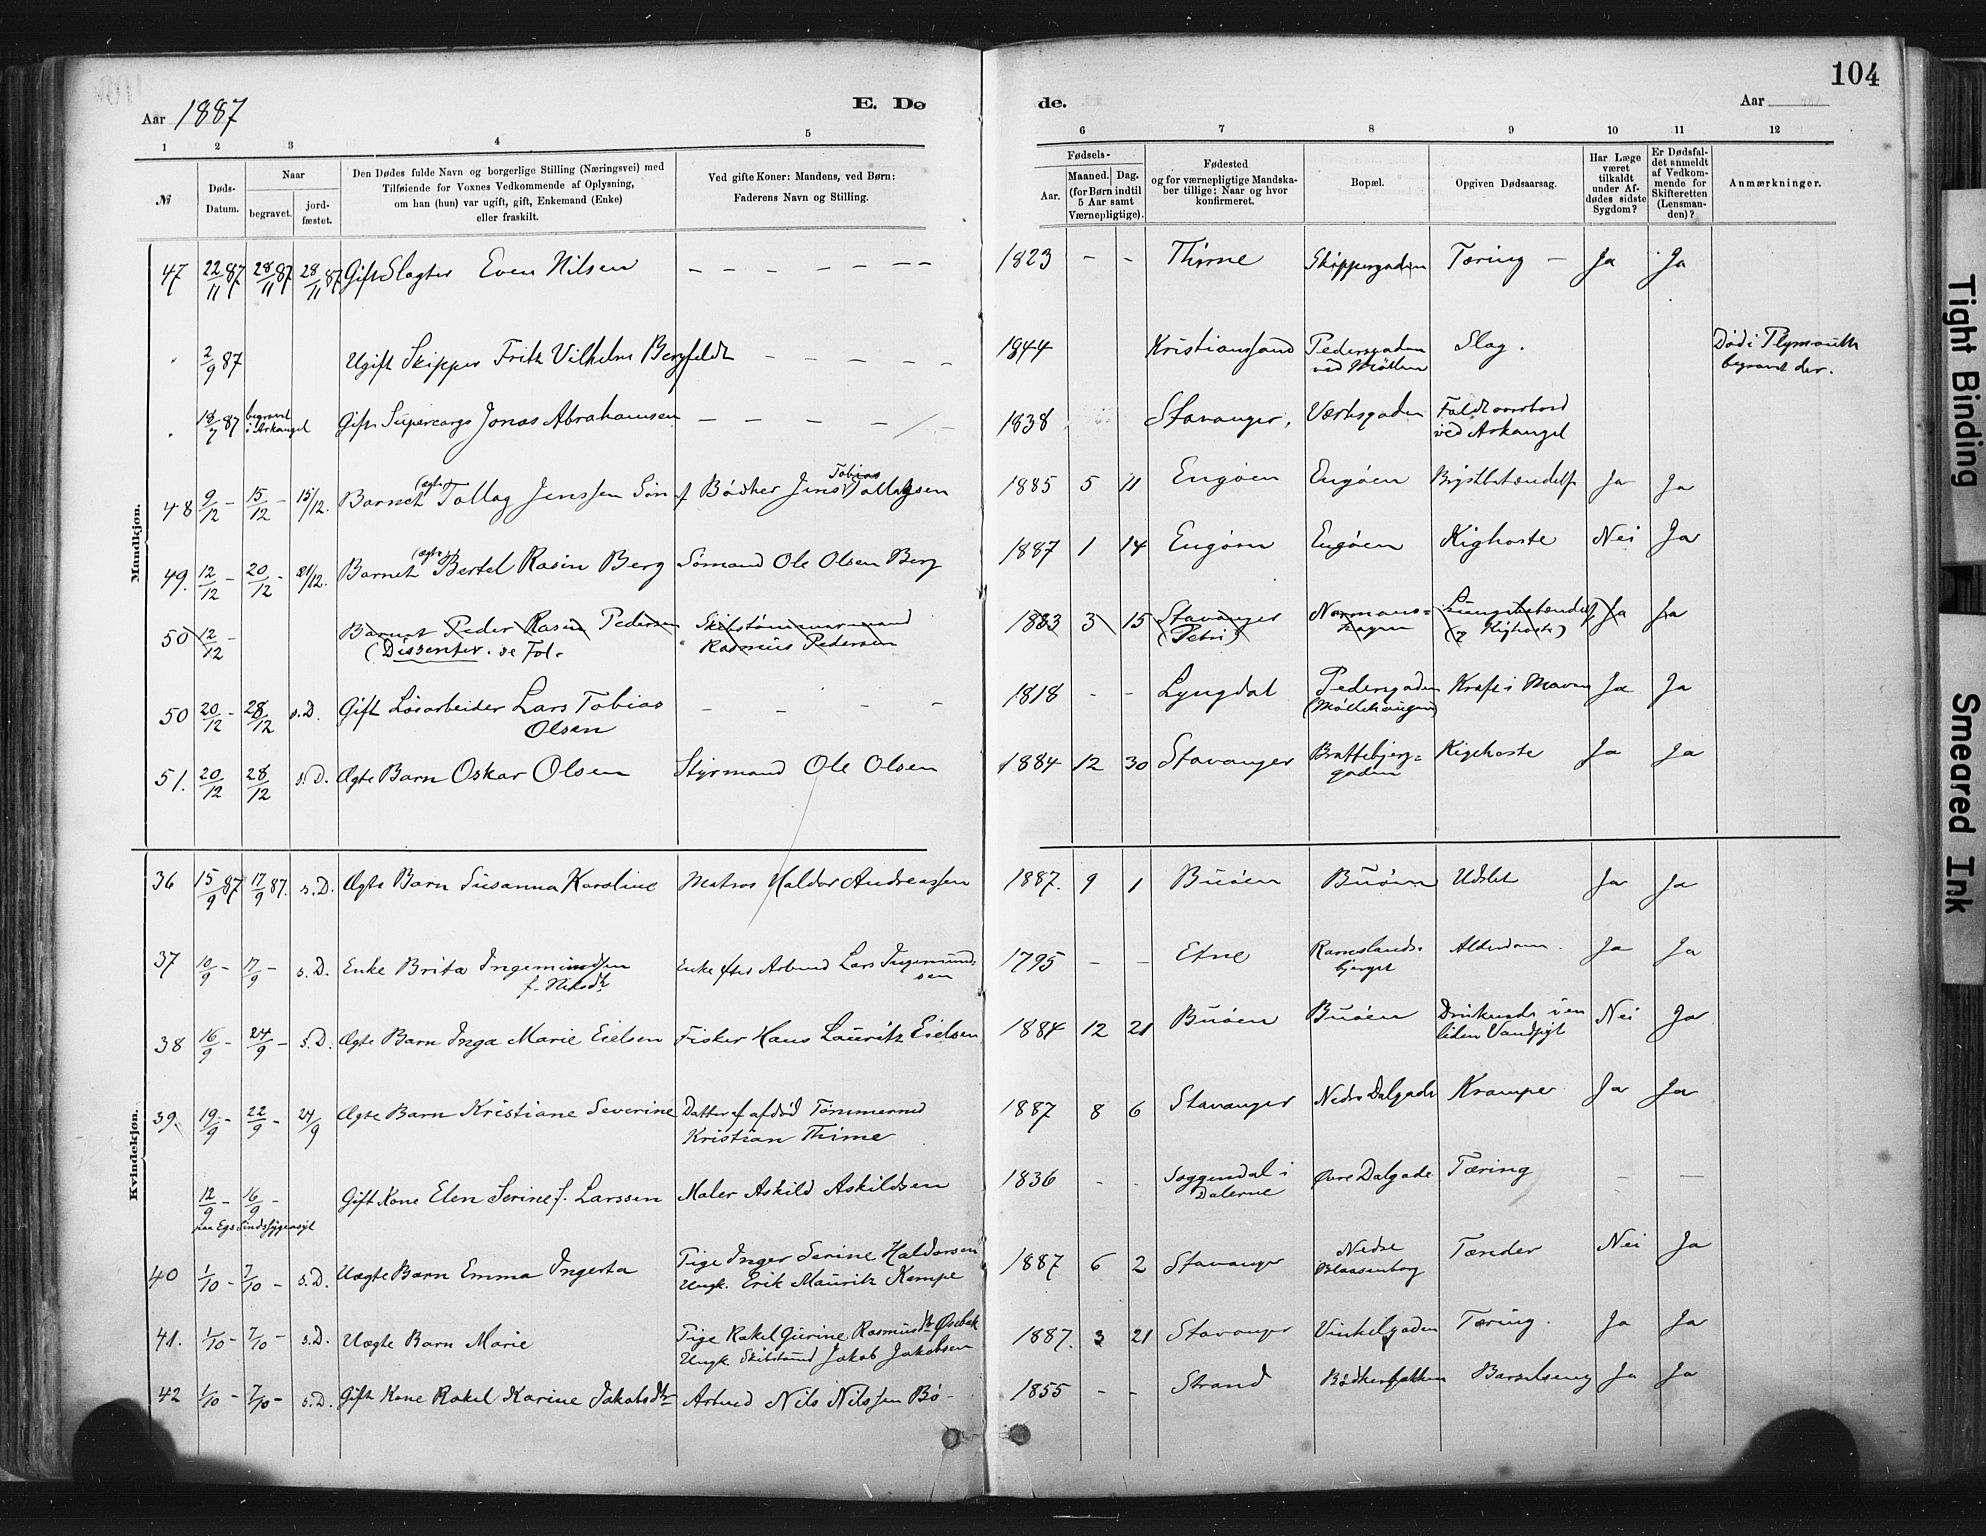 104
Aar 1887
E. Dø
de.
Aar
1 2 3 4 5 6 7 8 9 10 11 12
№
Døds-
Datum.
Naar
begravet.
jord-
fæstet.
Den Dødes fulde Navn og borgerlige Stilling (Næringsvei) med
Tilføiende for Voxnes Vedkommende af Oplysning,
om han (hun) var ugift, gift, Enkemand (Enke)
eller fraskilt.
Ved gifte Koner: Mandens, ved Børn:
Faderens Navn og Stilling.
Fødsels-
Aar.
Maaned. Dag.
(for Børn indtil
5 Aar samt
Værnepligtige).
Fødested
og for værnepligtige Mandska-
ber tillige: Naar og hvor
konfirmeret.
Bopæl.
Opgiven Dødsaarsag.
Har Læge
været
tilkaldt
under Af-
dødes sidste
Sygdom?
Er Dødsfal-
det anmeldt
af Vedkom-
mende for
Skifteretten
(Lensman-
den)?
Anmærkninger.
Mandkjøn.
47 22/11 87 28/11 87 28/11 87 Gift Slagter Even Nilsen – – – – – – – 1823 – – Thime Skippergaden Tæring – Ja Ja
" 2/9 87 Ugift Skipper Fritz Vilhelm Bergfeldt – – – – 1844 Kristianssand Pedersgaden
ved Møllen Slag. Død i Plymouth
begravet der.
" 18/7 87 begravet
i Arkangel Gift Supercargo Jonas Abrahamsen – – – – – 1838 Stavanger, Værksgaden Faldt overbord
ved Arkangel
48 9/12 – 15/12 – 15/12. Barnet (ægte) Tollag Jenssen Søn f Bødker Jens Tobias Tollagsen 1885 5 11 Engøen Engøen Brystbetændelse Ja Ja
49. 12/12 – 20/12 – 21/12. Barnet (ægte) Bertel Rasin Berg Sømand Ole Olsen Berg 1887 1 14 Engøen Engøen Kighoste Nei Ja
50 12/12 – Barnet Peder Rasin Pedersen Skibstømmermand
(Dissenter. se Fol. Rasmus Pedersen 1883 3 15 Stavanger
(Petri) Normans-
hagen Lungebetændelse
(og Kighoste) Ja Ja
50 20/12 – 28/12 s.D. Gift Løsarbeider Lars Tobias
Olsen – – – – 1818 – – Lyngdal Pedersgaden
(Møllehaugen) Kræft i Maven Ja Ja
51. 20/12 28/12 s.D. Ægte Barn Oskar Olsen Styrmand Ole Olsen 1884 12 30 Stavanger Brattebjerg-
gaden Kighoste Ja Ja
Kvindekjøn.
36 15/9 87 17/9 87. s.D. Ægte Barn Susanna Karoline Matros Haldor Andreassen 1887. 9 1 Buøen Buøen Udslet Ja Ja
37 10/9 – 17/9 – s.D. Enke Brita Ingemundsen
f. Nilsdtr Enke efter Arbmd Lars Ingemund-
sen 1795 – – Etne Ramslands-
bjerget Alderdom. Ja Ja
38 16/9 – 24/9 – s.D. Ægte Barn Inga Marie Eielsen Fisker Hans Lauritz Eielsen 1884 12 21 Buøen Buøen Druknede i en
liden Vandpyt Nei Ja
39. 19/9 – 22/9 – 24/9 Ægte Barn Kristiane Severine Datter af afdød Tømmermd
Kristian Thime 1887 8 6 Stavanger Nedre Dalgade Kramper Ja Ja
12/9 – 16/9 –
paa Egs Sindssygeasyl Gift Kone Elen Serine f. Larssen Maler Askild Askildsen 1836 – – Soggendal i
Dalerne Øvre Dalgade Tæring – –
40 1/10 – 7/10 – s.D. Uægte Barn Emma Ingerta Pige Inger Serine Haldorsen
Ungk. Erik Mauritz Kempe 1887 6 2 Stavanger Nedre
Blaasenborg Tænder Nei Ja
41. 1/10 – 7/10 – s.D. Uægte Barn Marie Pige Rakel Gurine Rasmusdtr Øsebak
Ungk. Skibstømd Jakob Jakobsen 1887. 3 21 Stavanger Vinkelgaden Tæring. Ja Ja
42 1/10 – 7/10 – s.D. Gift Kone Rakel Karine Jakobsdtr Arbmd Nils Nilssen Bø – 1855 – – Strand Bødkerbakken Barselseng Ja Ja
Tight Binding
Smeared Ink